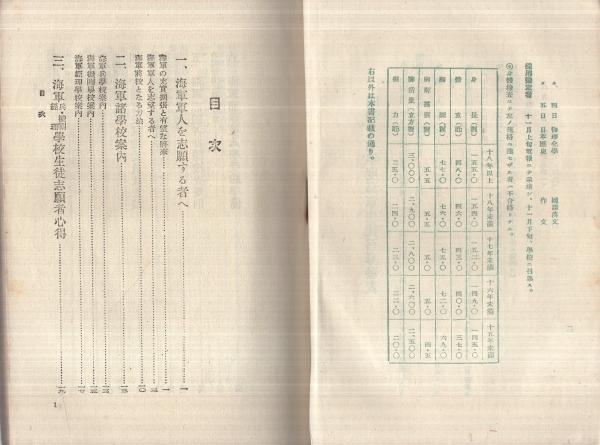 四日 物理化學 國語漢文
五日 日本歴史 作文
採用豫定者 十一月上旬電報ニテ示達シ、十一月下旬、學校ニ召集ス。
身體檢査ニ於テ左ノ規格ニ達セザル者ハ不合格トナル。
十八年以上 十八年未滿 十七年未滿 十六年未滿 十五年未滿
身長(糎) 一五五・〇 一五四・〇 一五二・〇 一四九・〇 一四五・〇
體重(瓩) 四八・〇 四六・〇 四三・〇 四〇・〇 三七・〇
胸圍(糎) 七八・〇 七六・〇 七五・〇 七二・〇 六九・〇
五・五 五・五 五・〇 五・〇 四・五
肺活量(立方糎) 三,〇〇〇 二,九〇〇 二,八〇〇 二,六〇〇 二,五〇〇
握力(瓩) 二五・〇 二四・〇 二三・〇 二二・〇 二〇・〇
右以外は本書記載の通り。
目次
一、海軍軍人を志願する者へ 一
海軍の充實擴張と有望な將來 一
海軍軍人を志望する者へ
海軍將校となる方法 一〇
二、海軍諸學校案内
海軍兵學校案内
海軍機關學校案内
海軍經理學校案内
三、海軍兵、機關、經理學校生徒志願者心得
目次
1